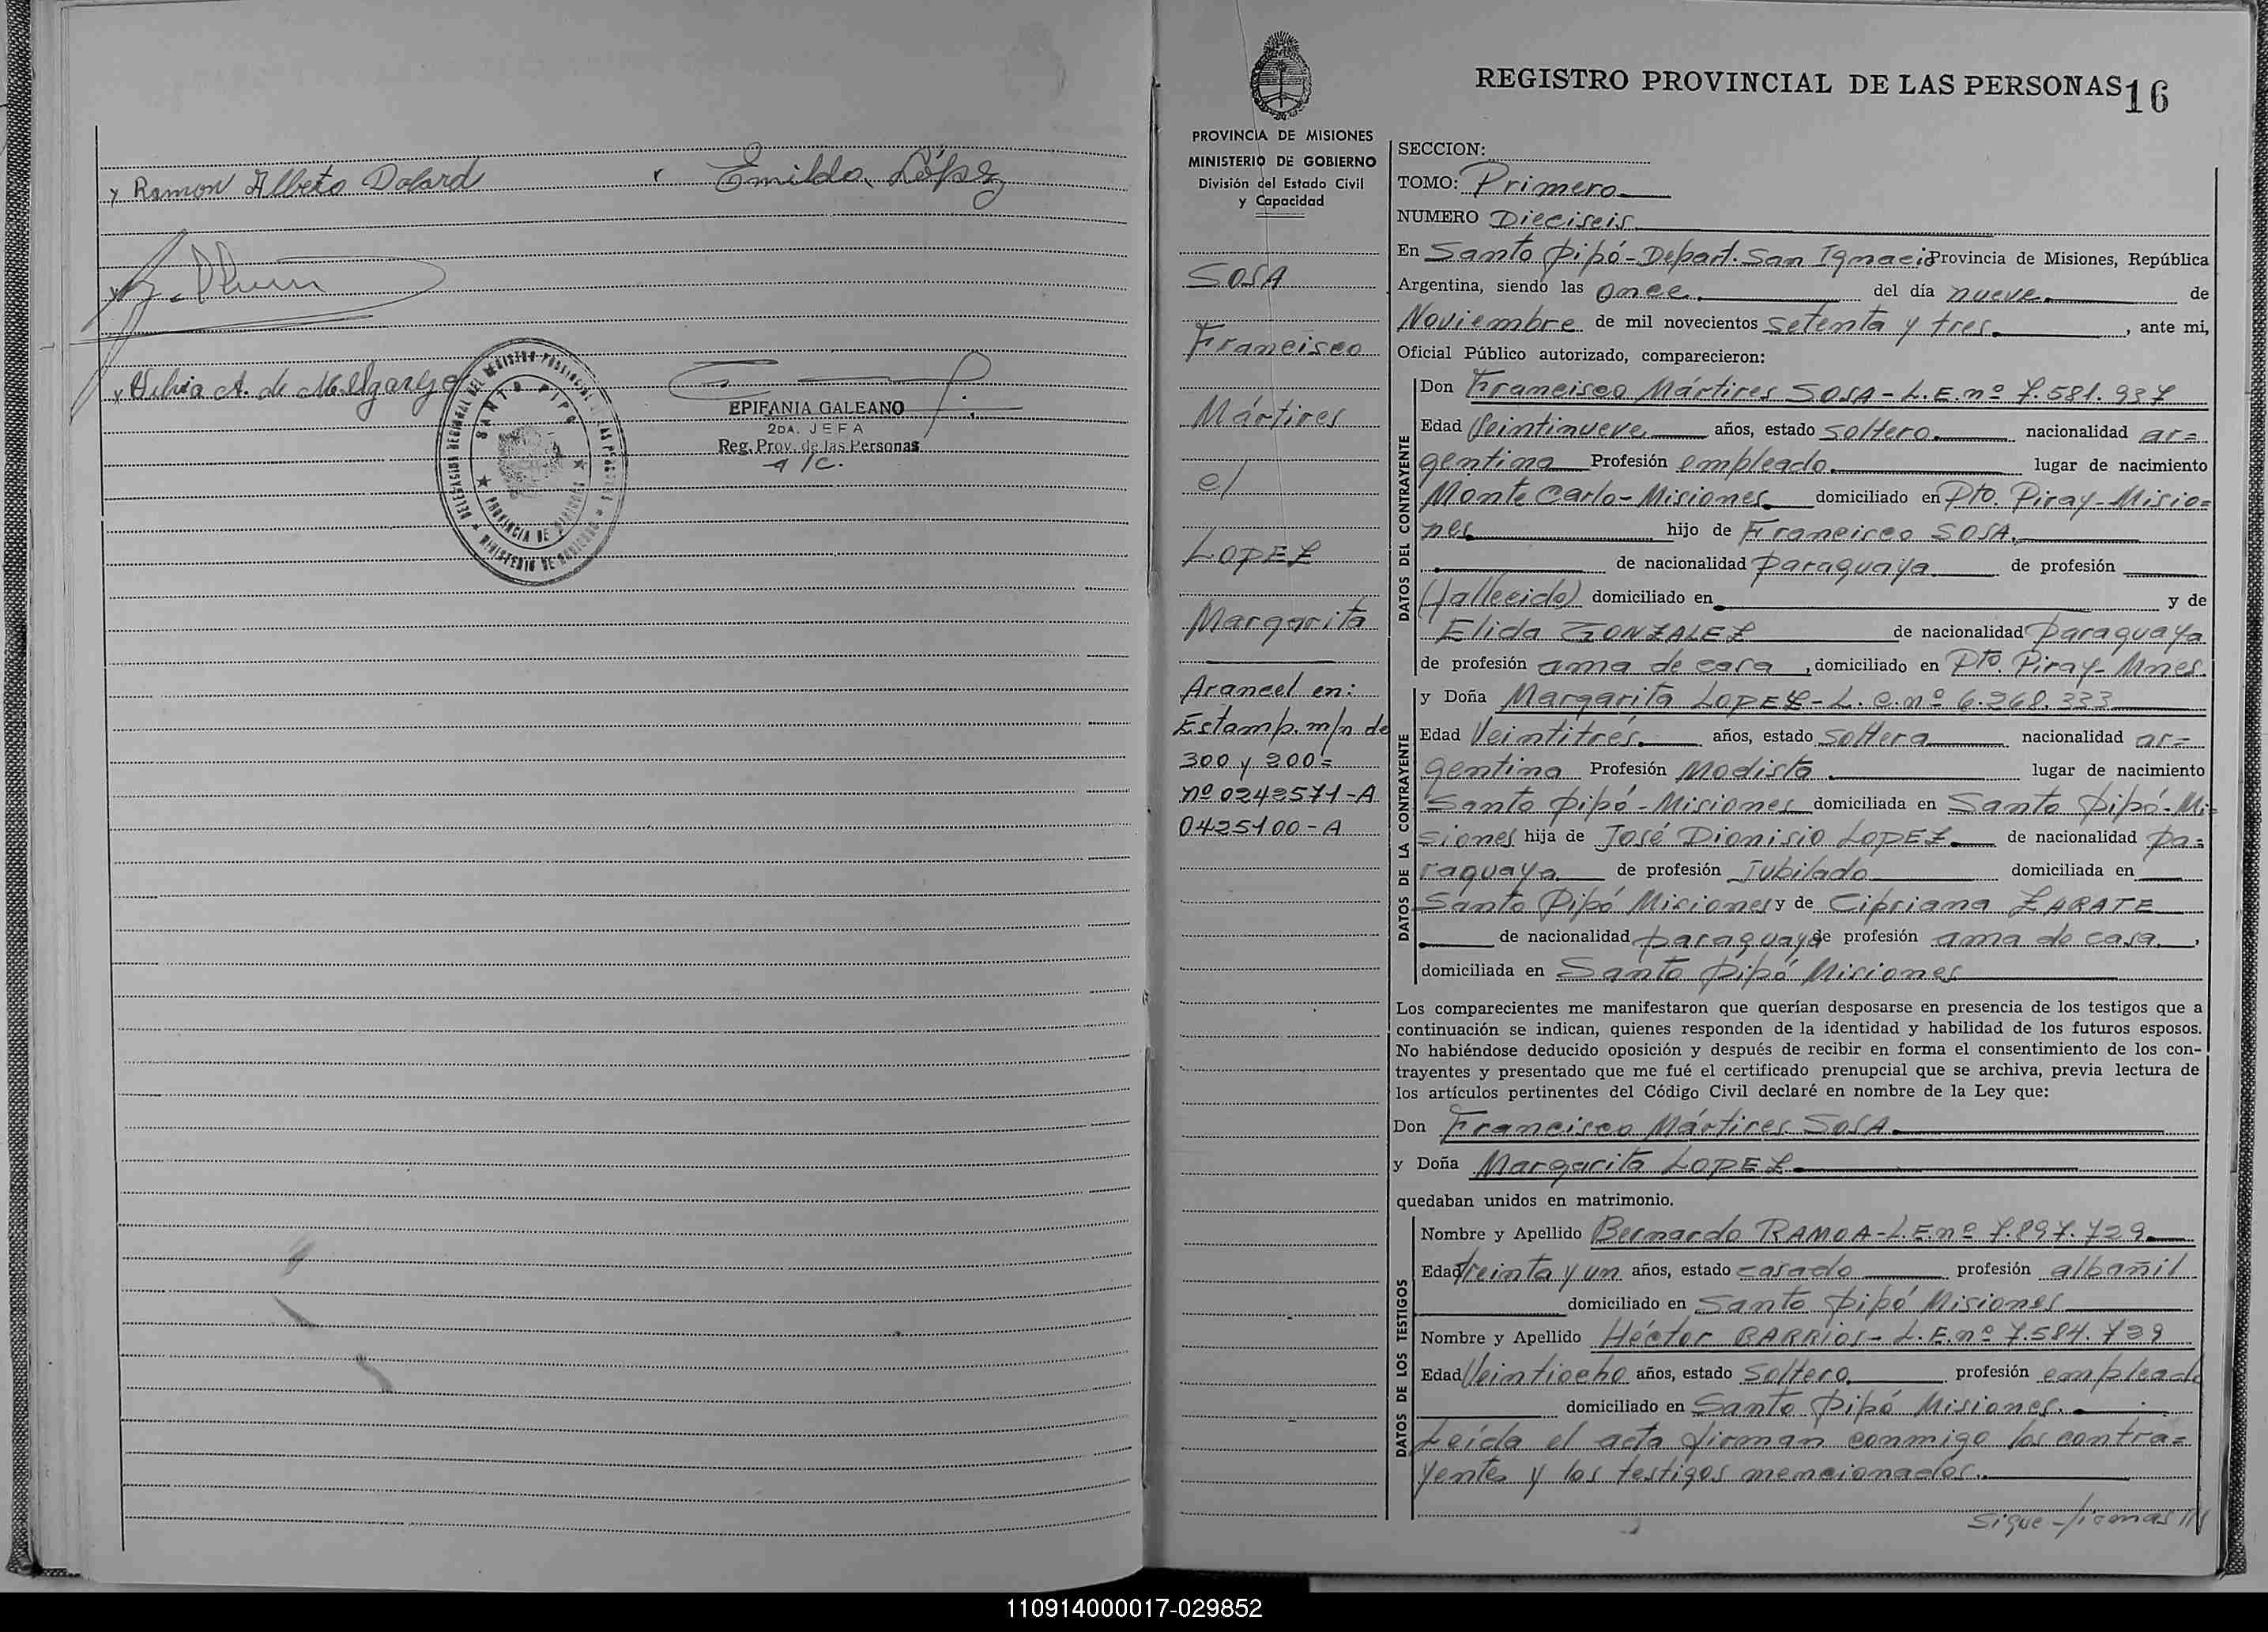 x Ramon Alberto Dolard
x Emilda López
x Silvia A. de Melgarejo
DELEGACION REGIONAL DEL REGISTRO PROVINCIAL DE LAS PERSONAS
SANTO PIPO
PROVINCIA DE MISIONES
MINISTERIO DE GOBIERNO
EPIFANIA GALEANO
2DA. JEFA
Reg. Prov. de las Personas
a/c.
PROVINCIA DE MISIONES
MINISTERIO DE GOBIERNO
División del Estado Civil
y Capacidad
SOSA
Francisco
Mártires
c/
LOPEZ
Margarita
Arancel en:
Estamp. m/n de
300 y 200=
nº 0242571-A
0425100-A
REGISTRO PROVINCIAL DE LAS PERSONAS 16
SECCION:
TOMO: Primero
NUMERO Dieciseis
En Santo Pipó-Depart. San Ignacio Provincia de Misiones, República
Argentina, siendo las once. del día nueve. de
Noviembre de mil novecientos setenta y tres. , ante mi,
Oficial Público autorizado, comparecieron:
DATOS DEL CONTRAYENTE
Don Francisco Mártires SOSA - L.E. nº 7.581.937
Edad Veintinueve años, estado soltero. nacionalidad ar=
gentina Profesión empleado. lugar de nacimiento
Monte Carlo-Misiones. domiciliado en Pto. Piray-Misio=
nes hijo de Francisco SOSA.
de nacionalidad Paraguaya de profesión
(fallecido) domiciliado en y de
Elida GONZALEZ de nacionalidad Paraguaya
de profesión ama de casa , domiciliado en Pto. Piray-Mnes.
DATOS DE LA CONTRAYENTE
y Doña Margarita LOPEZ - L.C. nº 6.268.333
Edad Veintitrés. años, estado soltera nacionalidad ar=
gentina Profesión Modista. lugar de nacimiento
Santo Pipó-Misiones domiciliada en Santo Pipó-Mi=
siones hija de José Dionisio LOPEZ. de nacionalidad pa=
raguaya. de profesión Jubilado domiciliada en
Santo Pipó Misiones y de Cipriana ZARATE
de nacionalidad paraguaya de profesión ama de casa. ,
domiciliada en Santo Pipó Misiones
Los comparecientes me manifestaron que querían desposarse en presencia de los testigos que a
continuación se indican, quienes responden de la identidad y habilidad de los futuros esposos.
No habiéndose deducido oposición y después de recibir en forma el consentimiento de los con-
trayentes y presentado que me fué el certificado prenupcial que se archiva, previa lectura de
los artículos pertinentes del Código Civil declaré en nombre de la Ley que:
Don Francisco Mártires SOSA.
y Doña Margarita LOPEZ.
quedaban unidos en matrimonio.
DATOS DE LOS TESTIGOS
Nombre y Apellido Bernardo RAMOA-L.E. nº 7.897.729
Edad treinta y un años, estado casado profesión albañil
domiciliado en Santo Pipó Misiones
Nombre y Apellido Héctor BARRIOS - L.E. nº 7.584.739
Edad Veintiocho años, estado Soltero. profesión empleado
domiciliado en Santo Pipó Misiones.
Leída el acta firman conmigo los contra=
yentes y los testigos mencionados.
Sigue-firmas ///
110914000017-029852